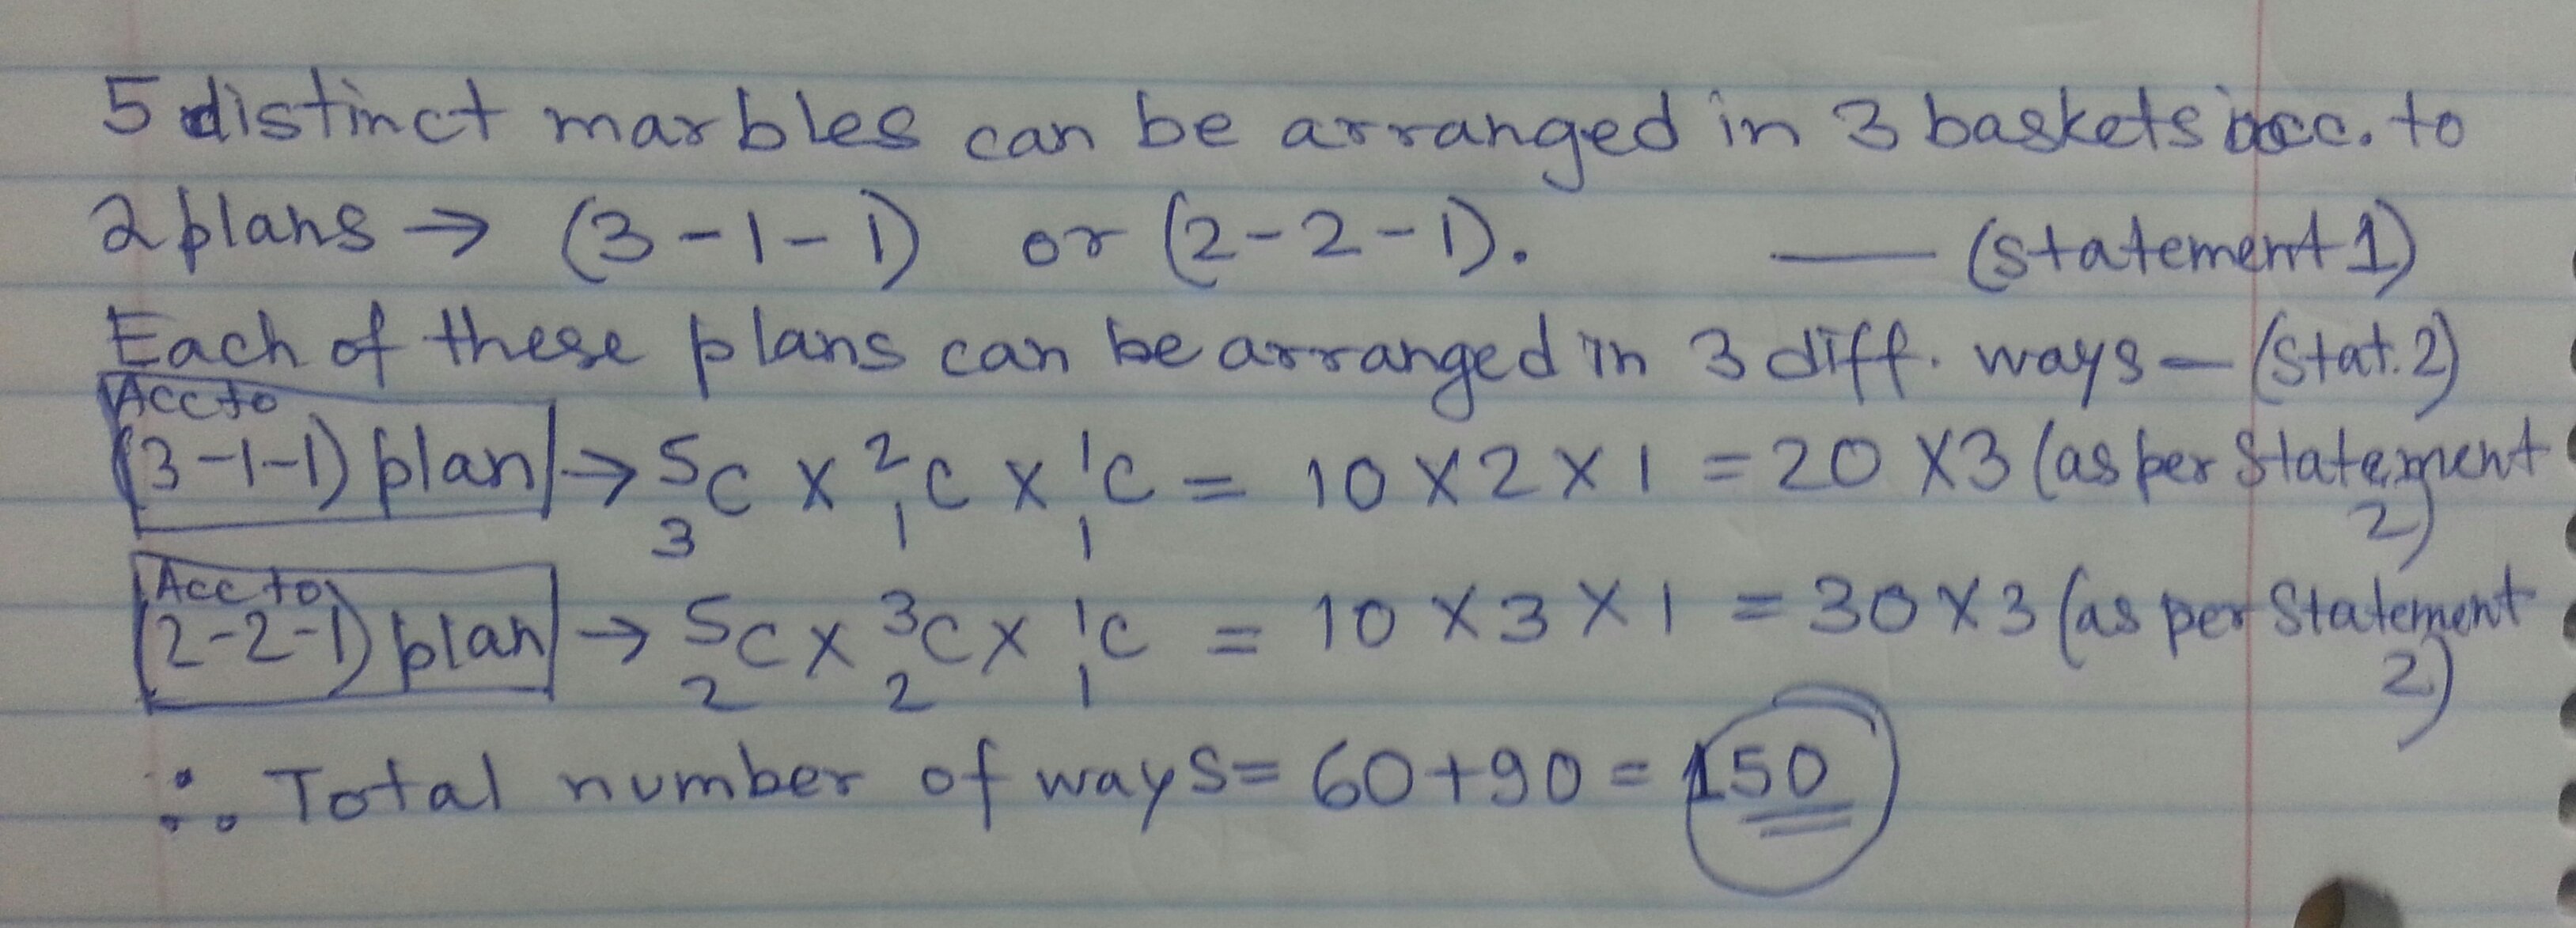 5 distinct marbles can be arranged in 3 baskets acc. to
2 plans → (3-1-1) or (2-2-1). — (statement 1)
Each of these plans can be arranged in 3 diff. ways – (Stat. 2)
Acc to
(3-1-1) plan → ⁵₃C × ²₁C × ¹₁C = 10 × 2 × 1 = 20 × 3 (as per Statement
2)
Acc to
(2-2-1) plan → ⁵₂C × ³₂C × ¹₁C = 10 × 3 × 1 = 30 × 3 (as per Statement
2)
∴ Total number of ways = 60 + 90 = 150